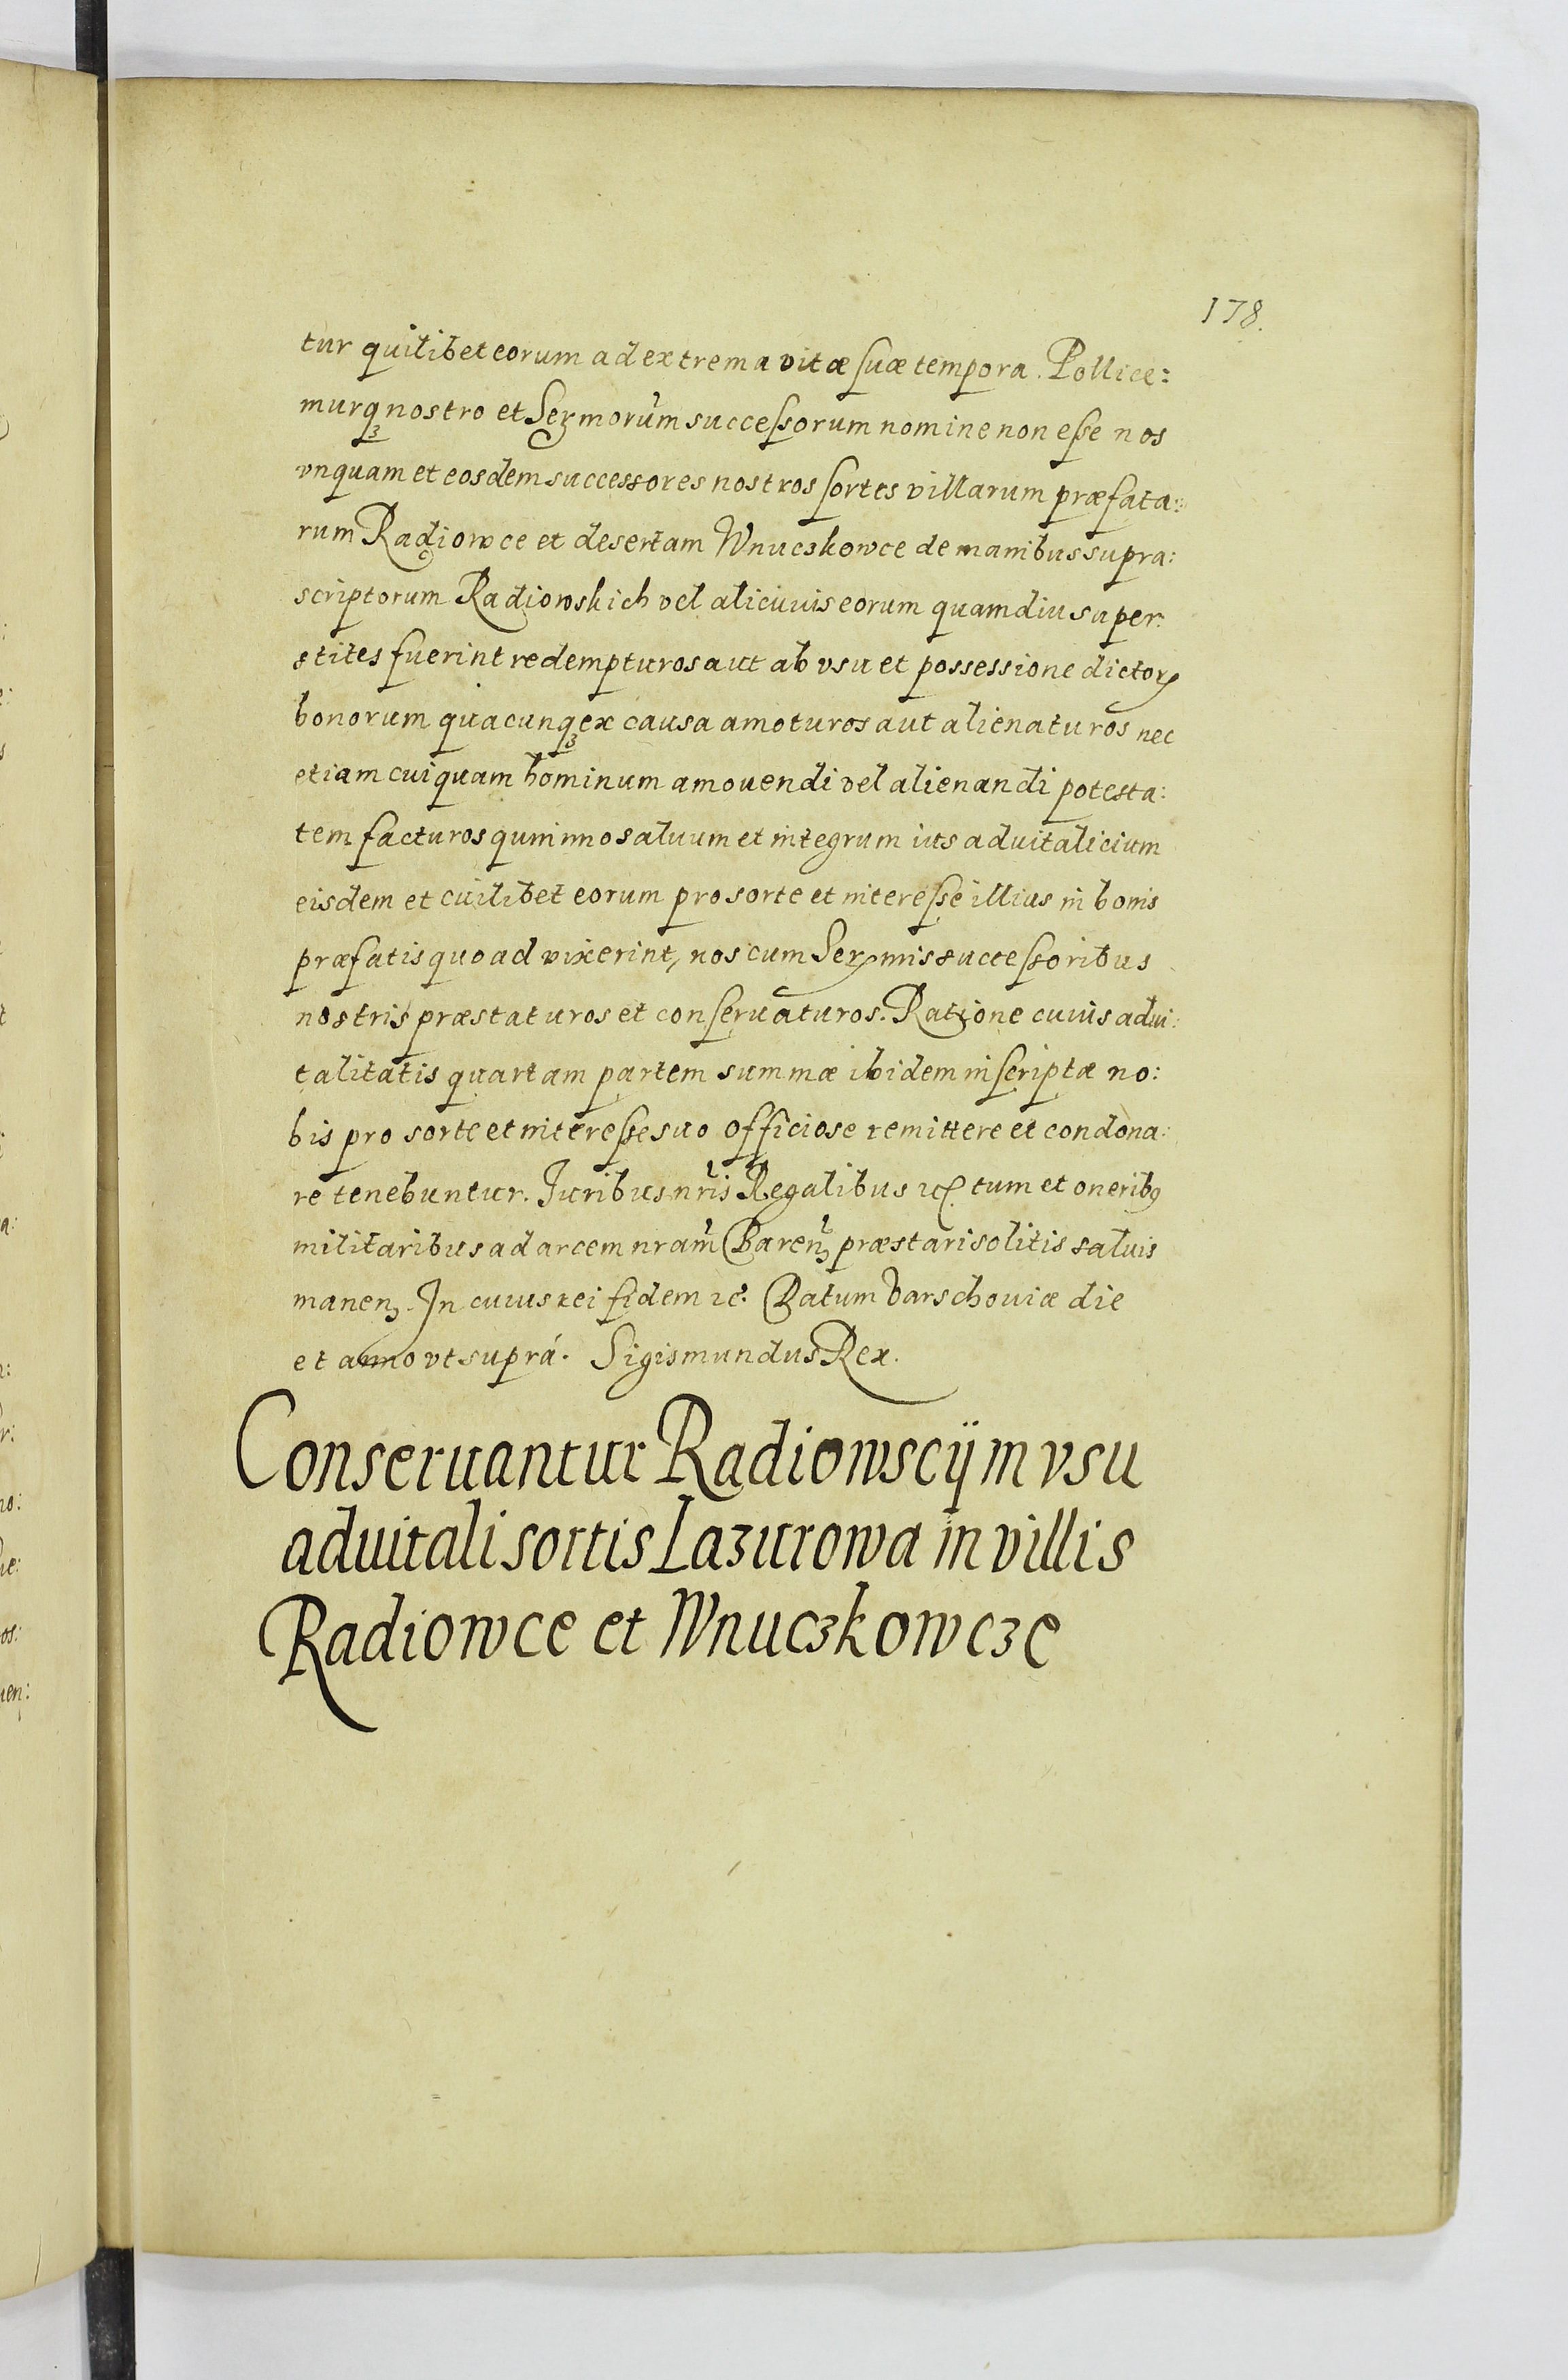 178.
tur quilibet eorum ad extrema vitæ ſuæ tempora. Pollice:
murqꝫ nostro et Serᵐorum succeſsorum nomine non eſse nos
vnquam et eosdem successores nostros ſortes villarum præfata:
rum Radiowce et desertam Wnucskowce de manibus supra:
scriptorum Radiowskich vel alicuius eorum quamdiu super:
stites fuerint redempturos aut ab vsu et possessione dictorꝝ
bonorum quacunqꝫ ex causa amoturos aut alienaturos nec
etiam cuiquam hominum amouendi vel alienandi potesta:
tem facturos quinimo saluum et integrum ius aduitalicium
eisdem et cuilibet eorum pro sorte et intereſse illius in bonis
præfatis quoad vixerint, nos cum Serꝫmis succeſsoribus
nostris præstaturos et conſeruaturos. Ratione cuius adui:
talitatis quartam partem summæ ibidem inſcriptæ no:
bis pro sorte et intereſse suo officiose remittere et condona:
re tenebuntur. Juribus nr̃is Regalibus ꝛc. tum et oneribꝰ
militaribus ad arcem nram̃ Barenꝫ præstari solitis saluis
manenꝫ. In cuius rei fidem ꝛc. Datum Varschouiæ die
et anno vt suprá. Sigismundus Rex.
Conseruantur Radiowscij in vsu
aduitali sortis Lazurowa in villis
Radiowce et Wnuczkowcze